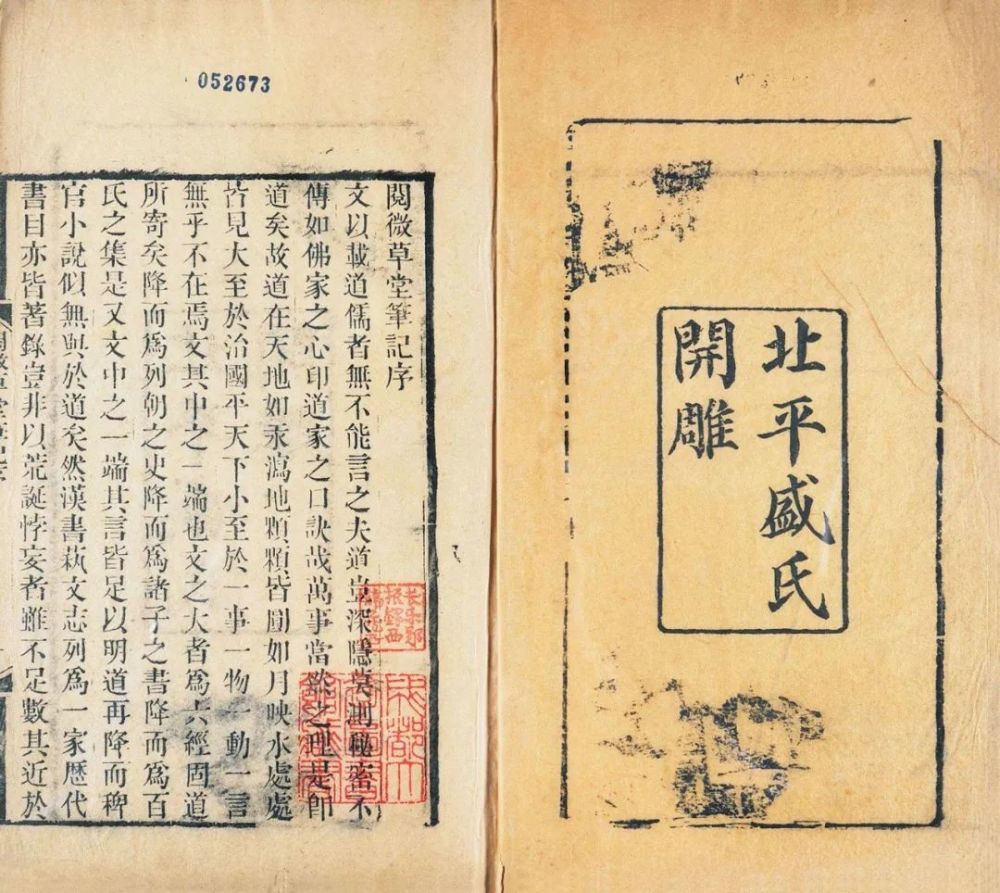 北平盛氏
開雕
052673
閱微草堂筆記序
文以載道儒者無不能言之夫道豈深隱莫測秘密不
傳如佛家之心印道家之口訣哉萬事當然之理是卽
道矣故道在天地如汞瀉地顆顆皆圓如月映水處處
皆見大至於治國平天下小至於一事一物一動一言
無乎不在焉文其中之一端也文之大者爲六經固道
所寄矣降而爲列朝之史降而爲諸子之書降而爲百
氏之集是又文中之一端其言皆足以明道再降而稗
官小說似無與於道矣然漢書蓺文志列爲一家歷代
書目亦皆著錄豈非以荒誕悖妄者雖不足數其近於
长乐郑
振铎西
谛藏书